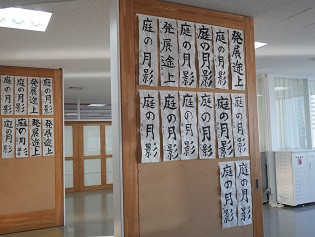 発展途上
庭の月影
庭の月影
庭の月影
発展途上
庭の月影
庭の月影
庭の月影
庭の月影
庭の月影
庭の月影
庭の月影
庭の月影
庭の月影
庭の月影
発展途上
庭の月影
庭の月影
発展途上
発展途上
庭の月影